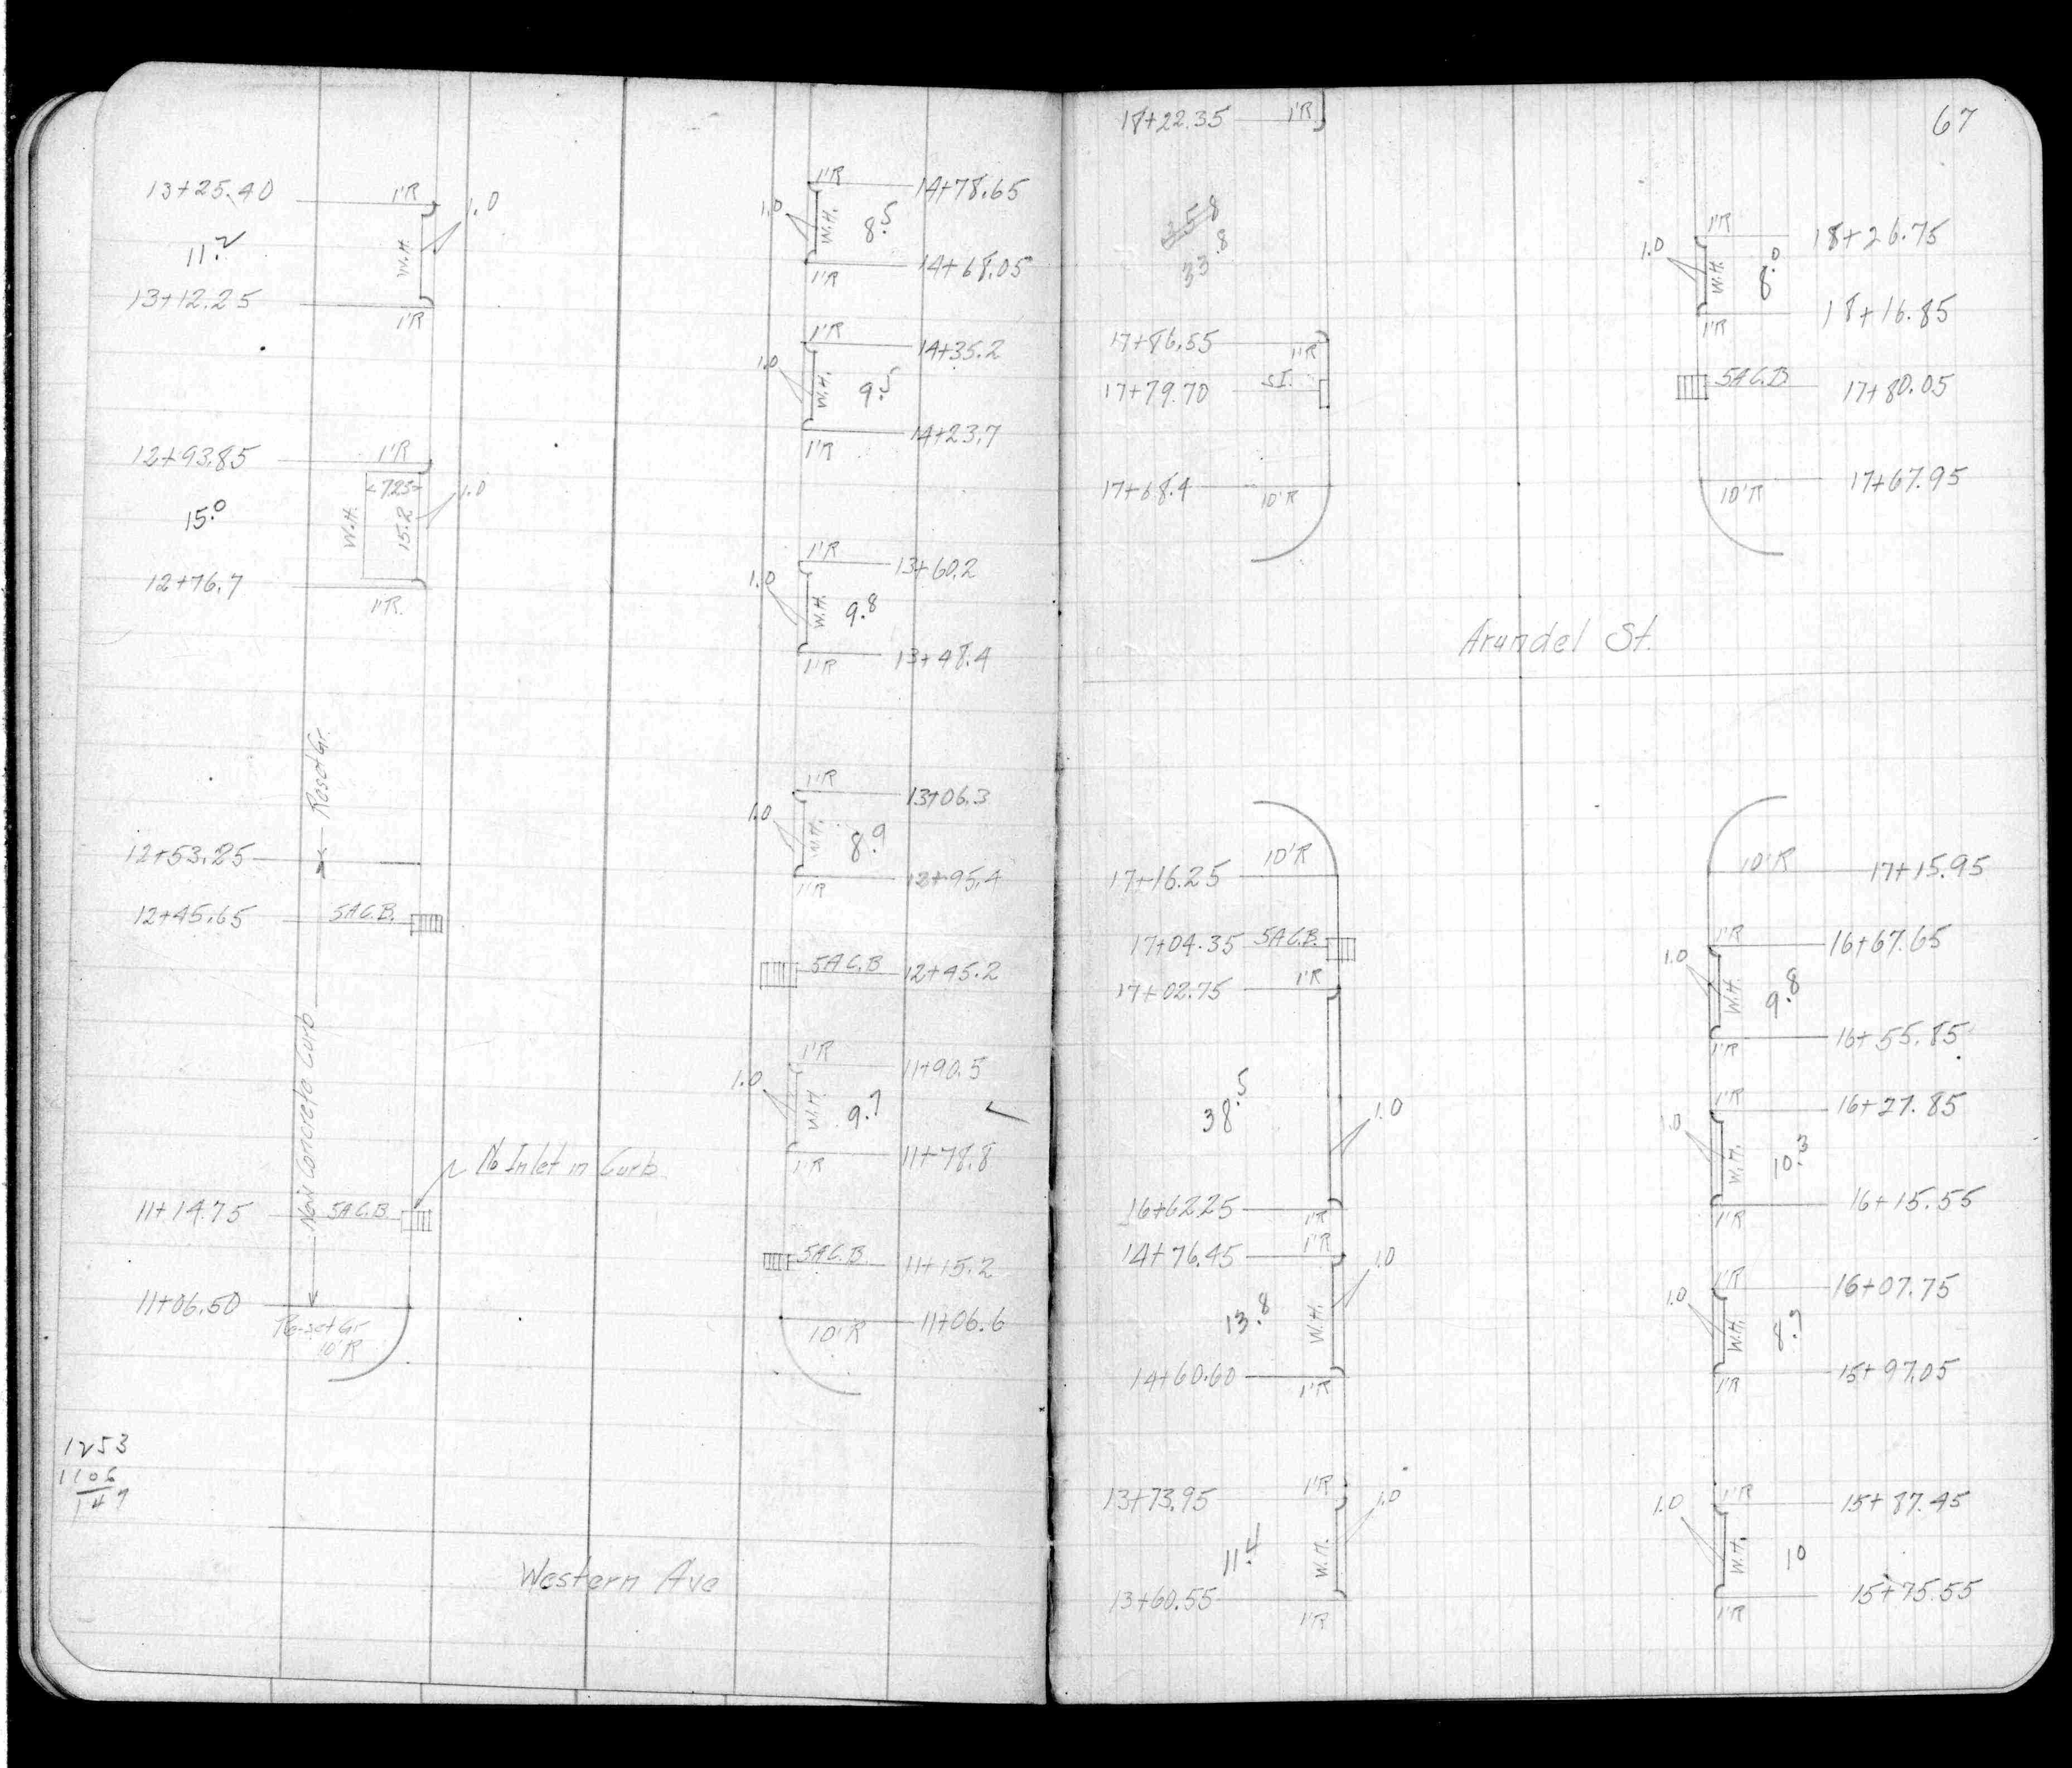 13+25.40 1'R 1.0
11.2 W.H.
13+12.25 1'R
12+93.85 1'R
<7.25> 1.0
15.0 W.H. 15.2
12+76.7 1'R.
Reset Gr.
12+53.25
12+45.65 5A C.B.
New Concrete Curb
No Inlet in Curb
11+14.75 5A C.B
11+06.50
Re-set Gr
10'R
1253
1106
147
Western Ave
1'R 14+78.65
1.0 W.H. 8.5
1'R 14+68.05
1'R 14+35.2
1.0 W.H. 9.5
1'R 14+23.7
1'R 13+60.2
1.0 W.H. 9.8
1'R 13+48.4
1'R 13+06.3
1.0 W.H. 8.9
1'R 12+95.4
5A C.B 12+45.2
1'R 11+90.5
1.0 W.H. 9.7
1'R 11+78.8
5A C.B. 11+15.2
10'R 11+06.6
67
18+22.35 1'R
35.8
33.8
17+86.55 1'R
17+79.70 S.I.
17+68.4 10'R
1'R 18+26.75
1.0 W.H. 8.0
1'R 18+16.85
5A C.B. 17+80.05
10'R 17+67.95
Arundel St.
17+16.25 10'R
17+04.35 5A C.B.
17+02.75 1'R
38.5 1.0
16+62.25 1'R
14+76.45 1'R 1.0
13.8 W.H.
14+60.60 1'R
13+73.95 1'R 1.0
11.4 W.H.
13+60.55 1'R
10'R 17+15.95
1'R 16+67.65
1.0 W.H. 9.8
1'R 16+55.85
1'R 16+27.85
1.0 W.H. 10.3
1'R 16+15.55
1'R 16+07.75
1.0 W.H. 8.7
1'R 15+97.05
1'R 15+87.45
1.0 W.H. 10
1'R 15+75.55